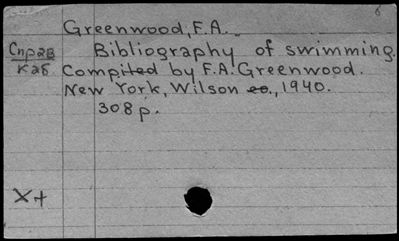 6
Greenwood, F.A.
Cnp2B Bibliography of swimming.
K28 Compiled by F.A. Greenwood.
New York, Wilson co., 1940.
308 p.
X+